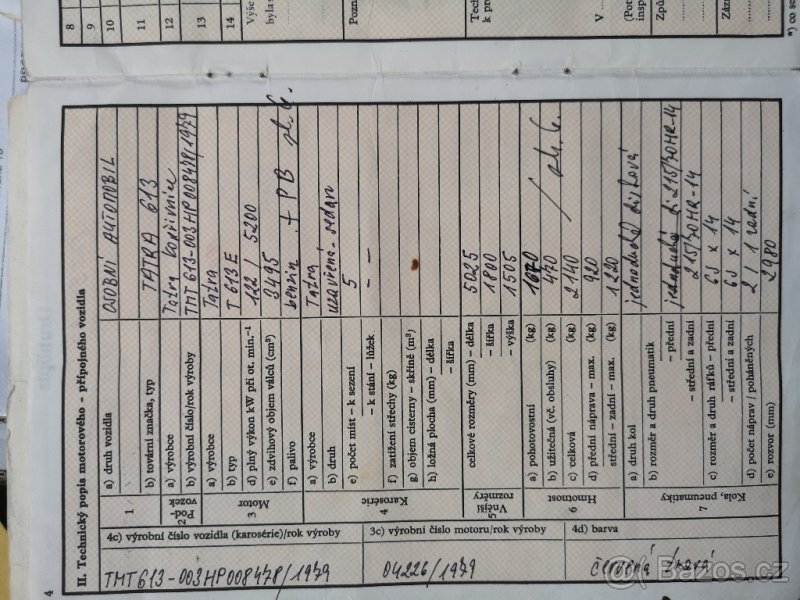 4
II. Technický popis motorového – přípojného vozidla
1
a) druh vozidla OSOBNÍ AUTOMOBIL
b) tovární značka, typ TATRA 613
2 Pod-vozek
a) výrobce Tatra Kopřivnice
b) výrobní číslo/rok výroby TMT 613-003HP008478/1979
3 Motor
a) výrobce Tatra
b) typ T 613 E
d) plný výkon kW při ot. min.⁻¹ 122 / 5200
e) zdvihový objem válců (cm³) 3495
f) palivo benzin + PB
4 Karosérie
a) výrobce Tatra
b) druh uzavřená - sedan
e) počet míst – k sezení 5
– k stání – lůžek – –
f) zatížení střechy (kg)
g) objem cisterny – skříně (m³)
h) ložná plocha (mm) – délka
– šířka
5 Vnější rozměry
celkové rozměry (mm) – délka 5025
– šířka 1800
– výška 1505
6 Hmotnost
a) pohotovostní (kg) 1670
b) užitečná (vč. obsluhy) (kg) 470
c) celková (kg) 2140
d) přední náprava – max. (kg) 920
střední – zadní – max. (kg) 1220
7 Kola, pneumatiky
a) druh kol jednoduchá disková
b) rozměr a druh pneumatik
– přední 215/70HR-14
– střední a zadní 215/70HR-14
c) rozměr a druh ráfků – přední 6J x 14
– střední a zadní 6J x 14
d) počet náprav / poháněných 2 / 1 zadní
e) rozvor (mm) 2980
4c) výrobní číslo vozidla (karosérie)/rok výroby
TMT613-003HP008478/1979
3c) výrobní číslo motoru/rok výroby
04226/1979
4d) barva
červená tmavá
8
9
10
11
12
13
14
Výše
byla s
Pozn
Techn
k pro
V
(Pot
inspe
Způ
Zázn
*) co se
Bazos.cz